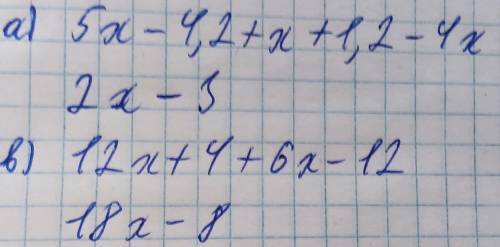 а) 5x - 4,2 + x + 1,2 - 4x
2x - 3
в) 12x + 4 + 6x - 12
18x - 8